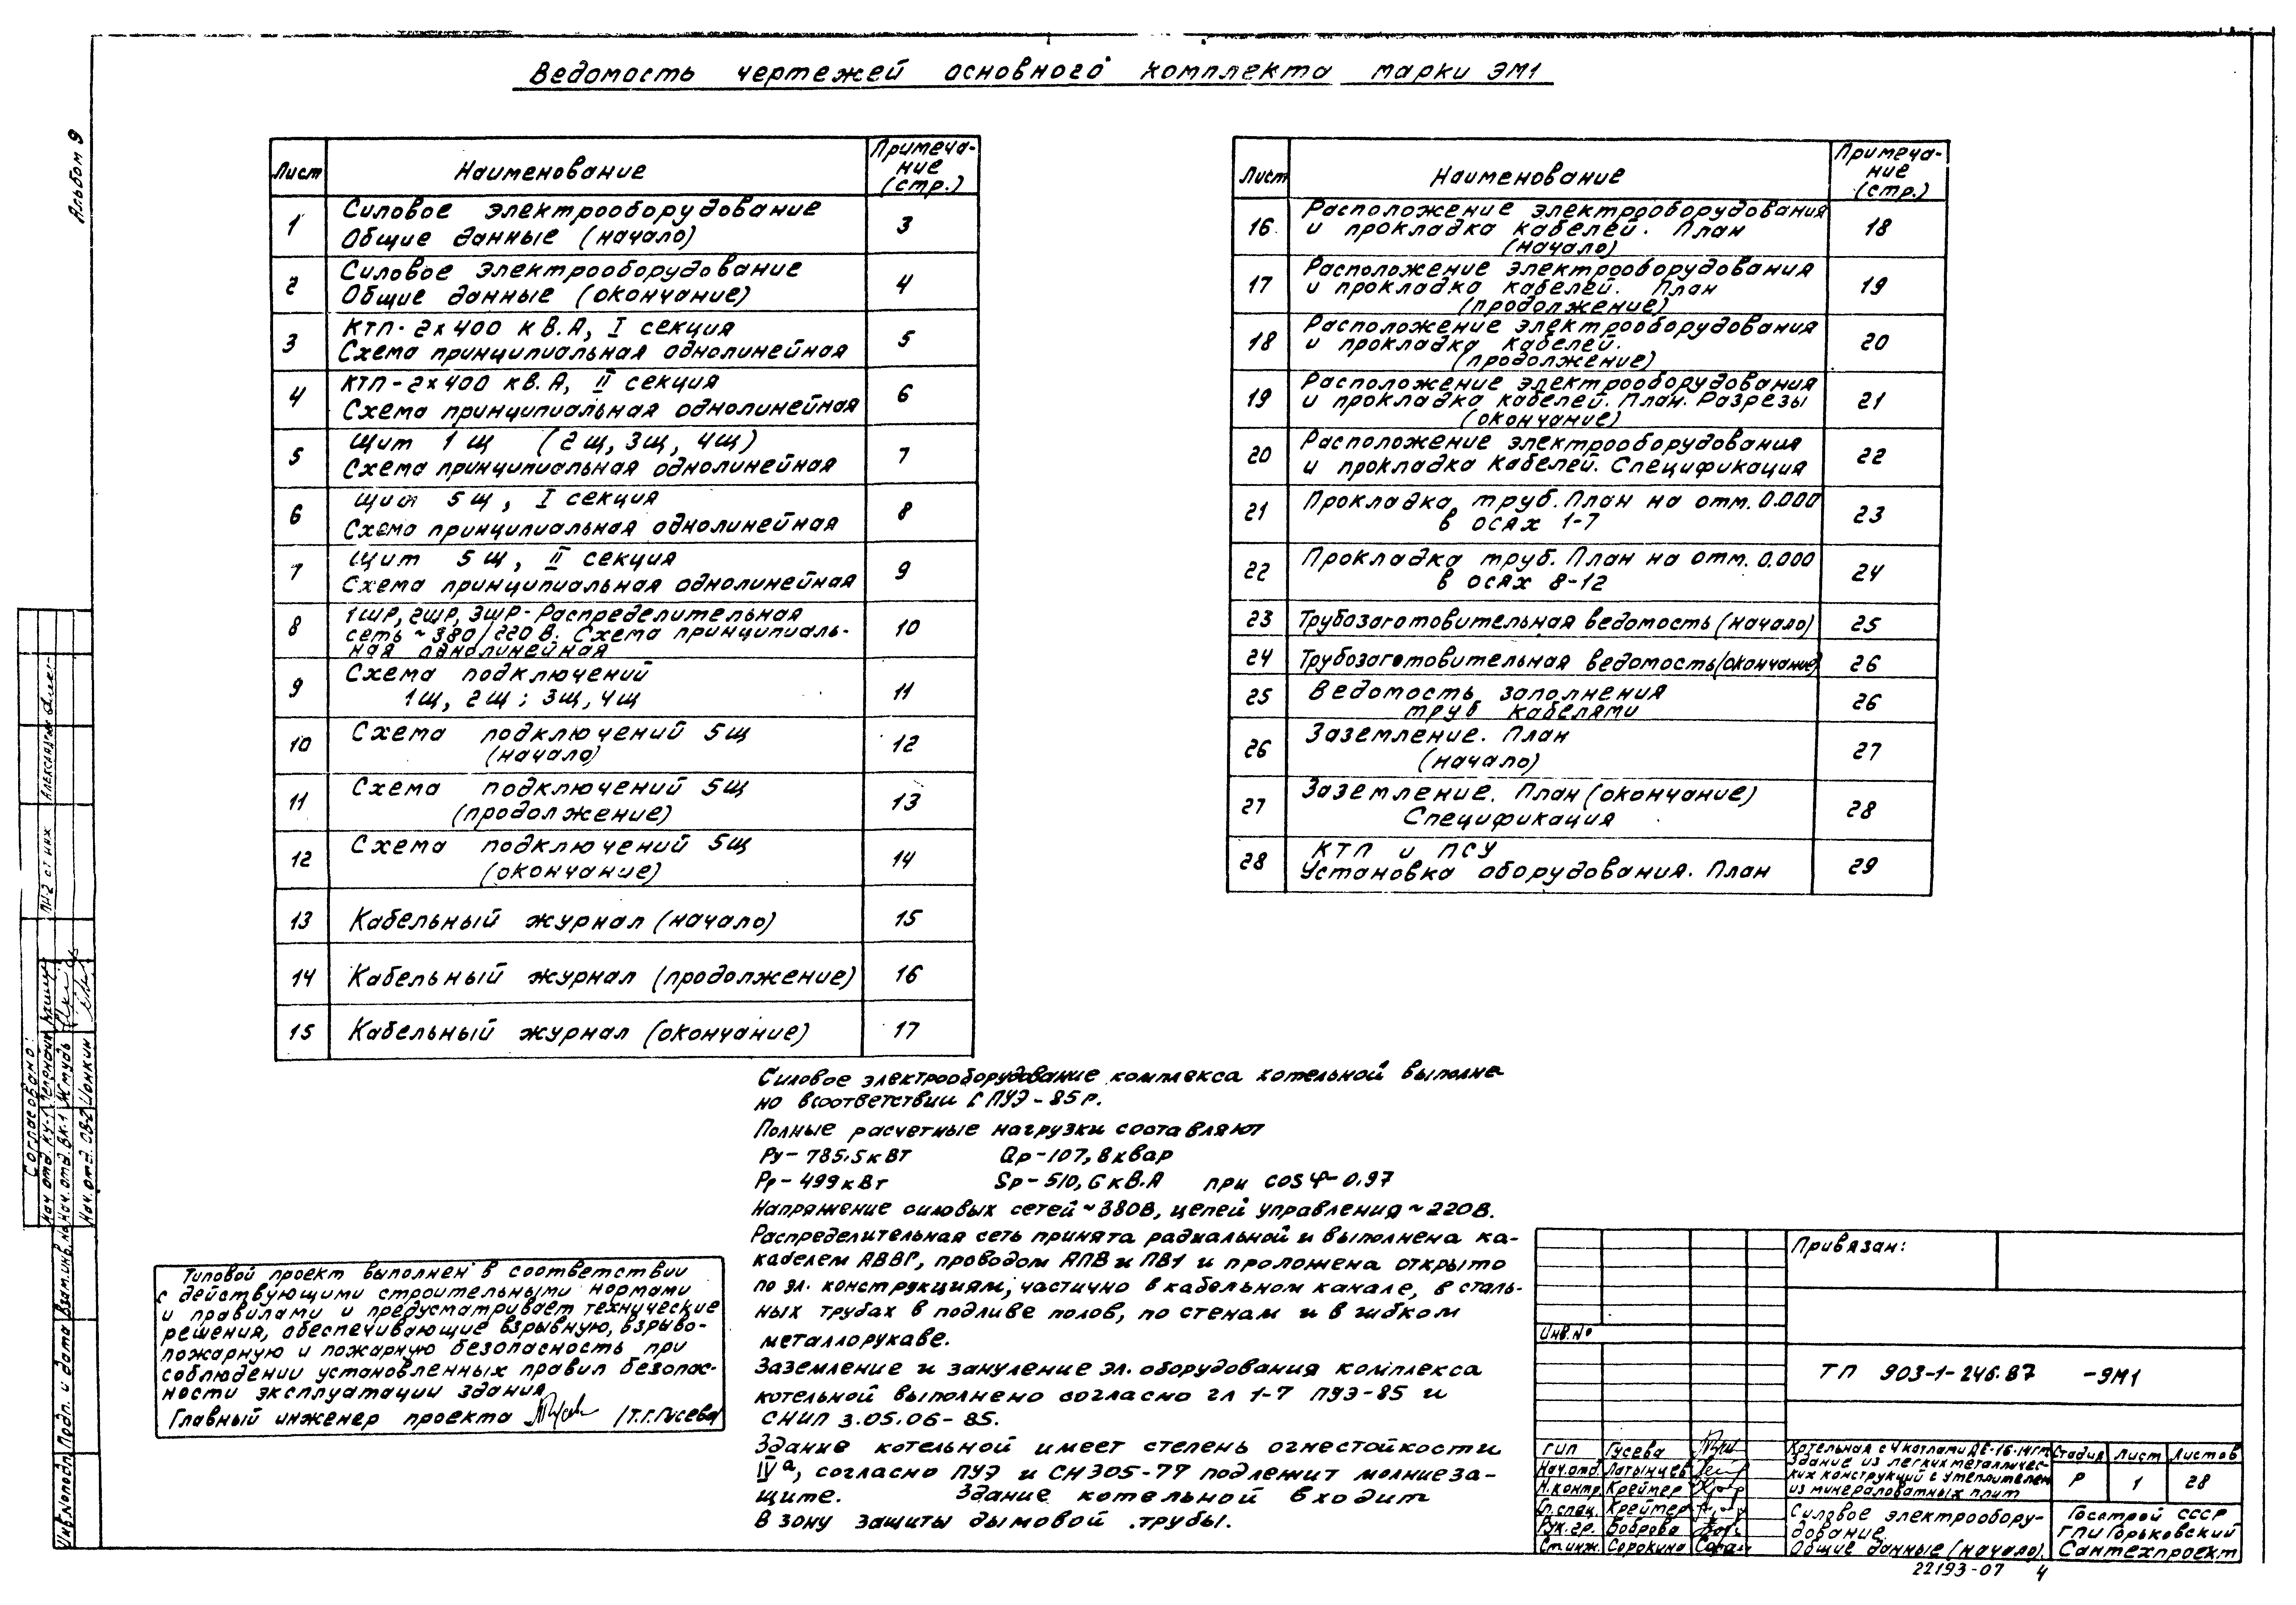 Ведомость чертежей основного комплекта марки ЭМ1
Альбом 9
Лист Наименование Примеча-
ние
(стр.)
1 Силовое электрооборудование
Общие данные (начало) 3
2 Силовое электрооборудование
Общие данные (окончание) 4
3 КТП-2х400 кВ.А, I секция
Схема принципиальная однолинейная 5
4 КТП-2х400 кВ.А, II секция
Схема принципиальная однолинейная 6
5 Щит 1щ (2щ, 3щ, 4щ)
Схема принципиальная однолинейная 7
6 Щит 5щ, I секция
Схема принципиальная однолинейная 8
7 Щит 5щ, II секция
Схема принципиальная однолинейная 9
8 1ШР, 2ШР, 3ШР- Распределительная
сеть ~380/220 В. Схема принципиаль-
ная однолинейная 10
9 Схема подключений
1щ, 2щ; 3щ, 4щ 11
10 Схема подключений 5щ
(начало) 12
11 Схема подключений 5щ
(продолжение) 13
12 Схема подключений 5щ
(окончание) 14
13 Кабельный журнал (начало) 15
14 Кабельный журнал (продолжение) 16
15 Кабельный журнал (окончание) 17
Лист Наименование Примеча-
ние
(стр.)
16 Расположение электрооборудования
и прокладка кабелей. План
(начало) 18
17 Расположение электрооборудования
и прокладка кабелей. План
(продолжение) 19
18 Расположение электрооборудования
и прокладка кабелей.
(продолжение) 20
19 Расположение электрооборудования
и прокладка кабелей. План. Разрезы
(окончание) 21
20 Расположение электрооборудования
и прокладка кабелей. Спецификация 22
21 Прокладка труб. План на отм. 0.000
в осях 1-7 23
22 Прокладка труб. План на отм. 0.000
в осях 8-12 24
23 Трубозаготовительная ведомость (начало) 25
24 Трубозаготовительная ведомость (окончание) 26
25 Ведомость заполнения
труб кабелями 26
26 Заземление. План
(начало) 27
27 Заземление. План (окончание)
Спецификация 28
28 КТП и ПСУ
Установка оборудования. План 29
Силовое электрооборудование комплекса котельной выполне
но в соответствии с ПУЭ-85г.
Полные расчетные нагрузки составляют
Ру-785.5кВт Qр-107,8квар
Рр-499кВт Sр-510,6кВ.А при cosφ-0.97
Напряжение силовых сетей ~380В, цепей управления ~220В.
Распределительная сеть принята радиальной и выполнена ка-
кабелем АВВГ, проводом АПВ и ПВ1 и проложена открыто
по эл. конструкциям, частично в кабельном канале, в сталь-
ных трубах в подливе полов, по стенам и в гибком
металлорукаве.
Заземление и зануление эл. оборудования комплекса
котельной выполнено согласно гл 1-7 ПУЭ-85 и
СНиП 3.05.06-85.
Здание котельной имеет степень огнестойкости
IVа, согласно ПУЭ и СН305-77 подлежит молниеза-
щите. Здание котельной входит
в зону защиты дымовой трубы.
Типовой проект выполнен в соответствии
с действующими строительными нормами
и правилами и предусматривает технические
решения, обеспечивающие взрывную, взрыво-
пожарную и пожарную безопасность при
соблюдении установленных правил безопас-
ности эксплуатации здания
Главный инженер проекта /Т.Г.Гусева/
Согласовано:
Нач. отд. КУ-1
Нач. отд. ВК-1 Жмудь
Нач. отд. ОВ-2 Ионкин
Инв.№подл. Подп. и дата Взам.инв.№
Привязан:
Инв.№
ТП 903-1-246.87 -ЭМ1
ГИП Гусева
Нач.отд. Латынцев
Н.контр. Креймер
Гл.спец. Креймер
Рук.гр. Боброва
Ст.инж. Сорокина
Котельная с 4 котлами ДЕ-16-14гм
Здание из легких металличес-
ких конструкций с утеплителем
из минераловатных плит
Стадия Лист Листов
Р 1 28
Силовое электрообору-
дование.
Общие данные (начало).
Госстрой СССР
ГПИ Горьковский
Сантехпроект
22193-07 4